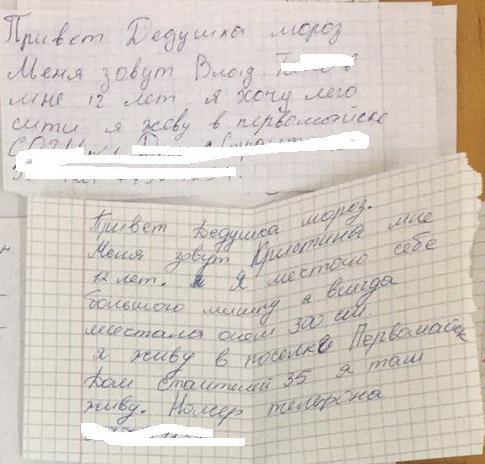 Привет Дедушка мороз
Меня зовут Влад.
мне 12 лет я хочу лего
сити я жеву в первомайске
Привет Дедушка мороз.
Меня зовут Кристина мне
12 лет. Я местаю себе
большого мишку я всигда
местала онем 300 см.
я живу в поселке Первомайск
Дом 35 я там
живу. Номер телефона